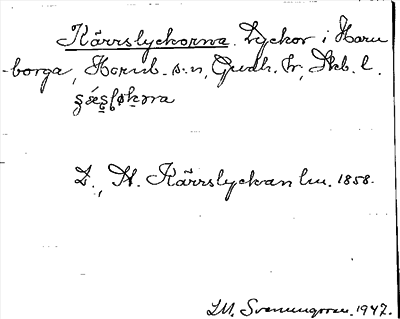 Kärrslyckorna. Lyckor i Haru
-borga, Hornb. s:n, Gudh. hr, Skb. l.
L., H. Kärrslyckan lm. 1858.
I.M. Svenungsson. 1947.